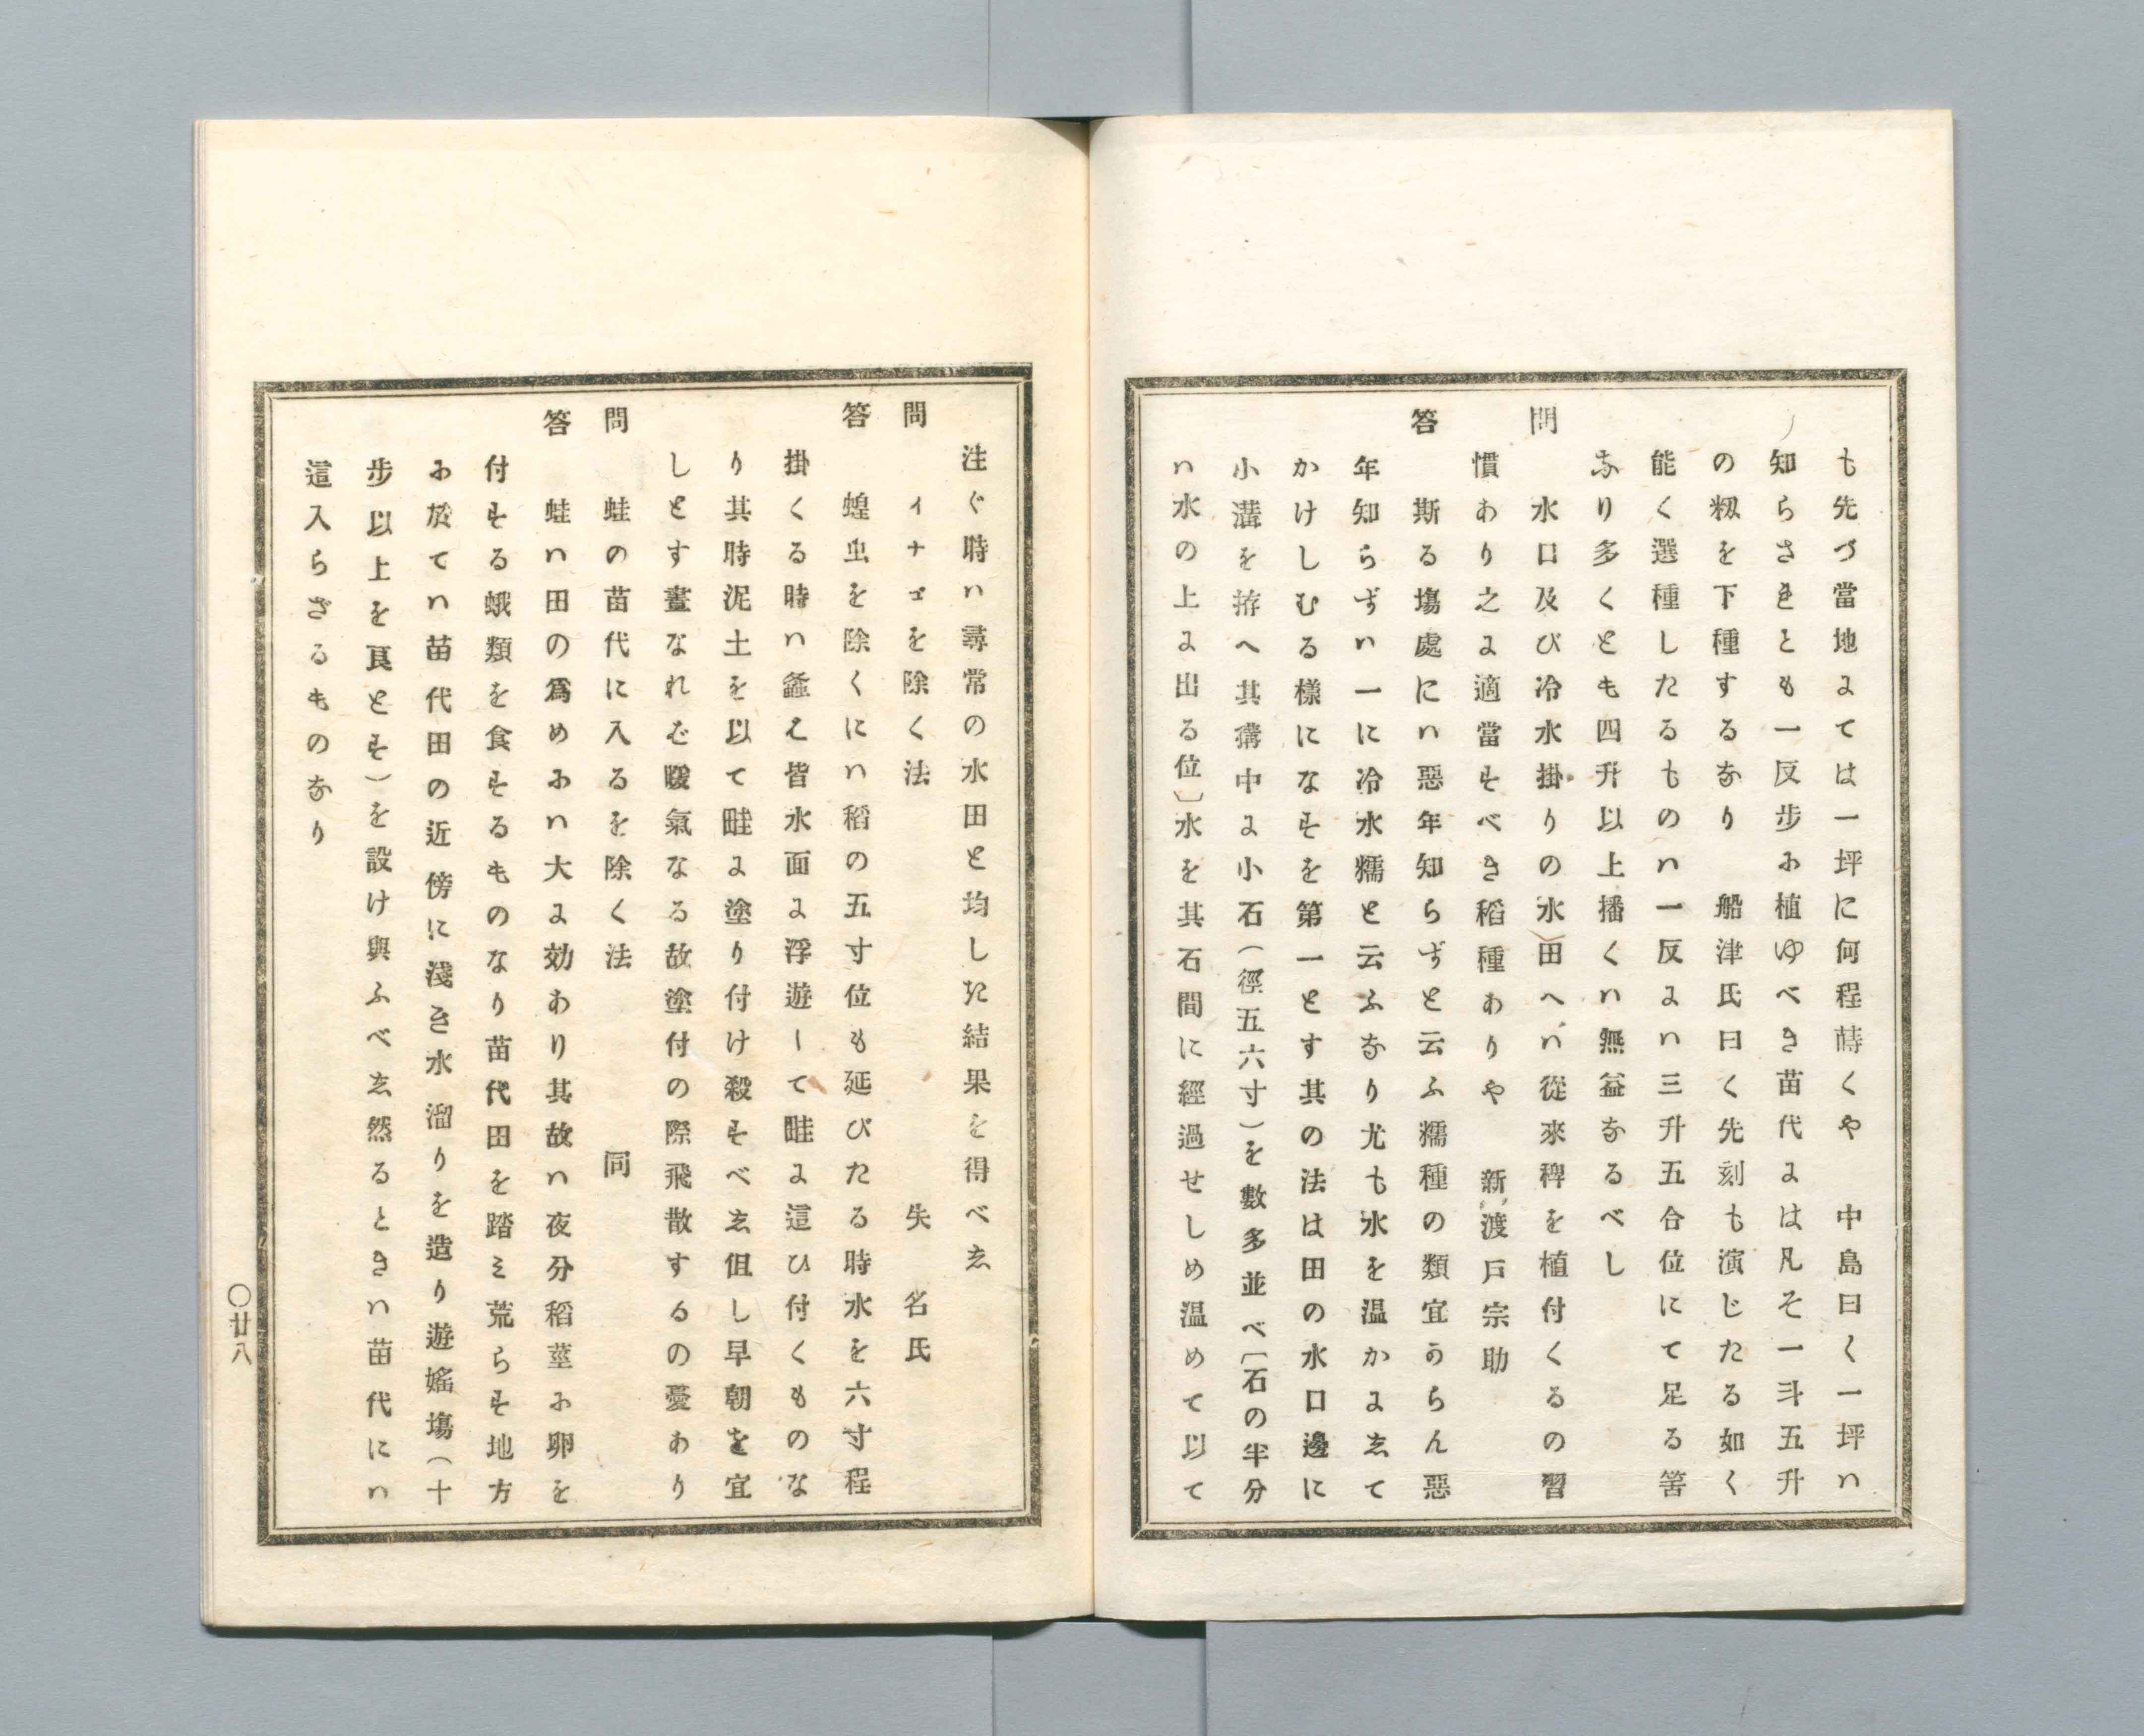 も先づ當地にては一坪に何程蒔くや　中島曰く一坪ハ
知らさきとも一反步に植ゆべき苗代には凡そ一斗五升
の籾を下種するなり　船津氏曰く先刻も演じたる如く
能く選種したるものハ一反にハ三升五合位にて足る筈
なり多くとも四升以上播くハ無益なるべし
問　水口及び冷水掛りの水田へハ從來稗を植付くるの習
慣あり之に適當すべき稻種ありや　新渡戸宗助
答　斯る塲處にハ惡年知らずと云ふ糯種の類宜からん惡
年知らずハ一に冷水糯と云ふなり尤も水を温かにゑて
かけしむる樣になすを第一とす其の法は田の水口邊に
小溝を拵へ其溝中に小石（徑五六寸）を數多並べ〔石の半分
ハ水の上に出る位〕水を其石間に經過せしめ温めて以て
注ぐ時ハ尋常の水田と均した結果を得べゑ
問　イナゴを除く法　失名氏
答　蝗虫を除くにハ稻の五寸位も延びたる時水を六寸程
掛くる時ハ蟲え皆水面に浮遊して畦に這ひ付くものな
り其時泥土を以て畦に塗り付け殺すべゑ但し早朝を宜
しとす晝なれば暖氣なる故塗付の際飛散するの憂あり
問　蛙の苗代に入るを除く法　同
答　蛙ハ田の爲めにハ大に効あり其故ハ夜分稻莖に卵を
付する蛾類を食するものなり苗代田を踏み荒らす地方
に於てハ苗代田の近傍に淺き水溜りを造り遊婬塲（十
步以上を良とす）を設け與ふべゑ然るときハ苗代にハ
這入らざるものなり
〇廿八